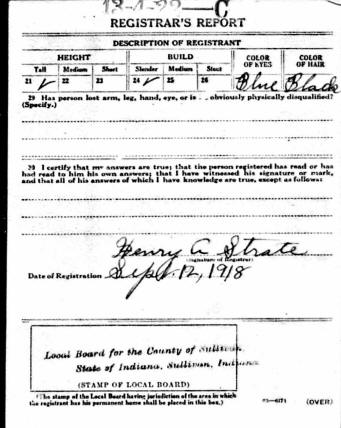 13-4-22-C
REGISTRAR'S REPORT
DESCRIPTION OF REGISTRANT
HEIGHT BUILD COLOR OF EYES COLOR OF HAIR
Tall Medium Short Slender Medium Stout
21 ✓ 22 23 24 ✓ 25 26 Blue Black
29 Has person lost arm, leg, hand, eye, or is obviously physically disqualified?
(Specify.)
30 I certify that my answers are true; that the person registered has read or has
had read to him his own answers; that I have witnessed his signature or mark,
and that all of his answers of which I have knowledge are true, except as follows:
Henry A Strate
(Signature of Registrar)
Date of Registration Sept. 12, 1918
Local Board for the County of Sullivan,
State of Indiana, Sullivan, Indiana
(STAMP OF LOCAL BOARD)
(The stamp of the Local Board having jurisdiction of the area in which
the registrant has his permanent home shall be placed in this box.)
03—6171 (OVER)